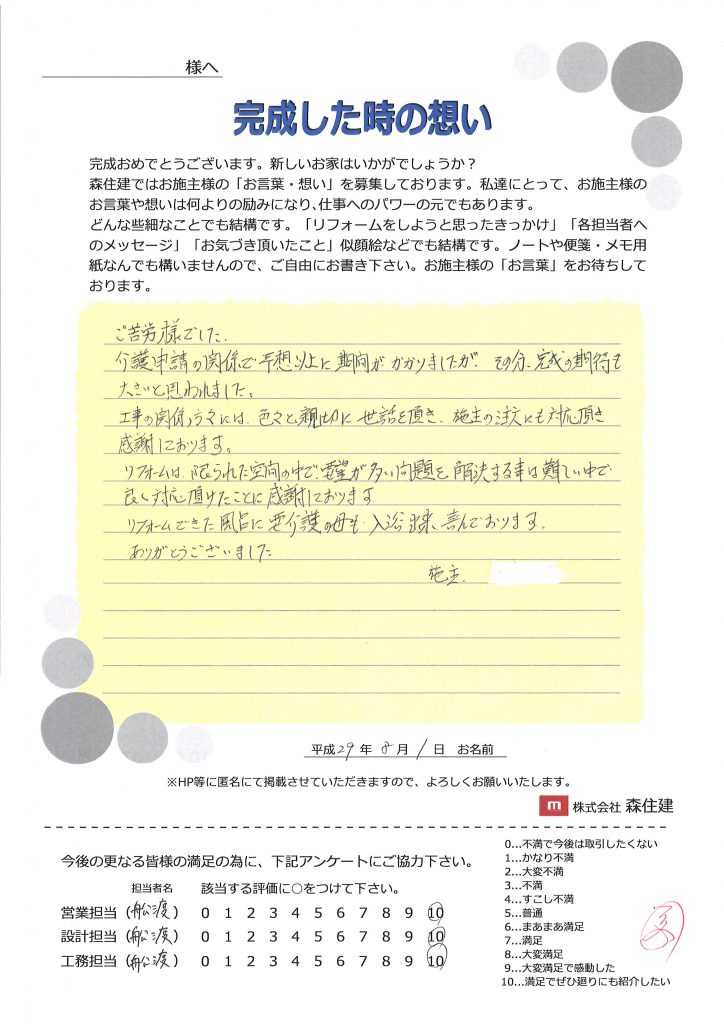 様へ
完成した時の想い
完成おめでとうございます。新しいお家はいかがでしょうか？
森住建ではお施主様の「お言葉・想い」を募集しております。私達にとって、お施主様の
お言葉や想いは何よりの励みになり、仕事へのパワーの元でもあります。
どんな些細なことでも結構です。「リフォームをしようと思ったきっかけ」「各担当者へ
のメッセージ」「お気づき頂いたこと」似顔絵などでも結構です。ノートや便箋・メモ用
紙なんでも構いませんので、ご自由にお書き下さい。お施主様の「お言葉」をお待ちして
おります。
ご苦労様でした.
介護申請の関係で予想以上に期間がかかりましたが、その分、完成の期待も
大きいと思われました。
工事の関係の方々には、色々と親切に世話を頂き、施主の注文にも対応頂き
感謝しております。
リフォームは、限られた空間の中で、要望が多い問題を解決する事は難しい中で
良く対応頂けたことに感謝しております
リフォームできた風呂に要介護の母も入浴出来、喜んでおります.
ありがとうございました
施主.
平成29年8月1日 お名前
※HP等に匿名にて掲載させていただきますので、よろしくお願いいたします。
m 株式会社 森住建
今後の更なる皆様の満足の為に、下記アンケートにご協力下さい。
担当者名 該当する評価に○をつけて下さい。
営業担当（船渡） 0 1 2 3 4 5 6 7 8 9 10
設計担当（船渡） 0 1 2 3 4 5 6 7 8 9 10
工務担当（船渡） 0 1 2 3 4 5 6 7 8 9 10
0…不満で今後は取引したくない
1…かなり不満
2…大変不満
3…不満
4…すこし不満
5…普通
6…まあまあ満足
7…満足
8…大変満足
9…大変満足で感動した
10…満足でぜひ廻りにも紹介したい